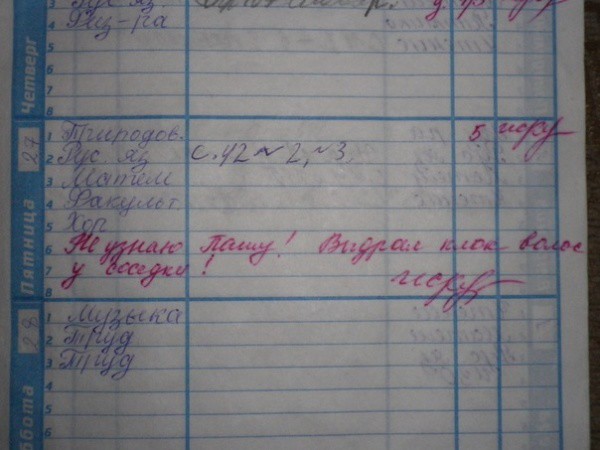 Четверг
3 Рус яз.
4 Физ-ра
5
6
7
8
Пятница 27
1 Природов. 5
2 Рус. яз с. 42 № 2, № 3.
3 Матем
4 Факульт.
5 Хор
6 Не узнаю Пашу! Выдрал клок волос
7 у соседки!
8
28
1 Музыка
2 Труд
3 Труд
4
5
6
ббота